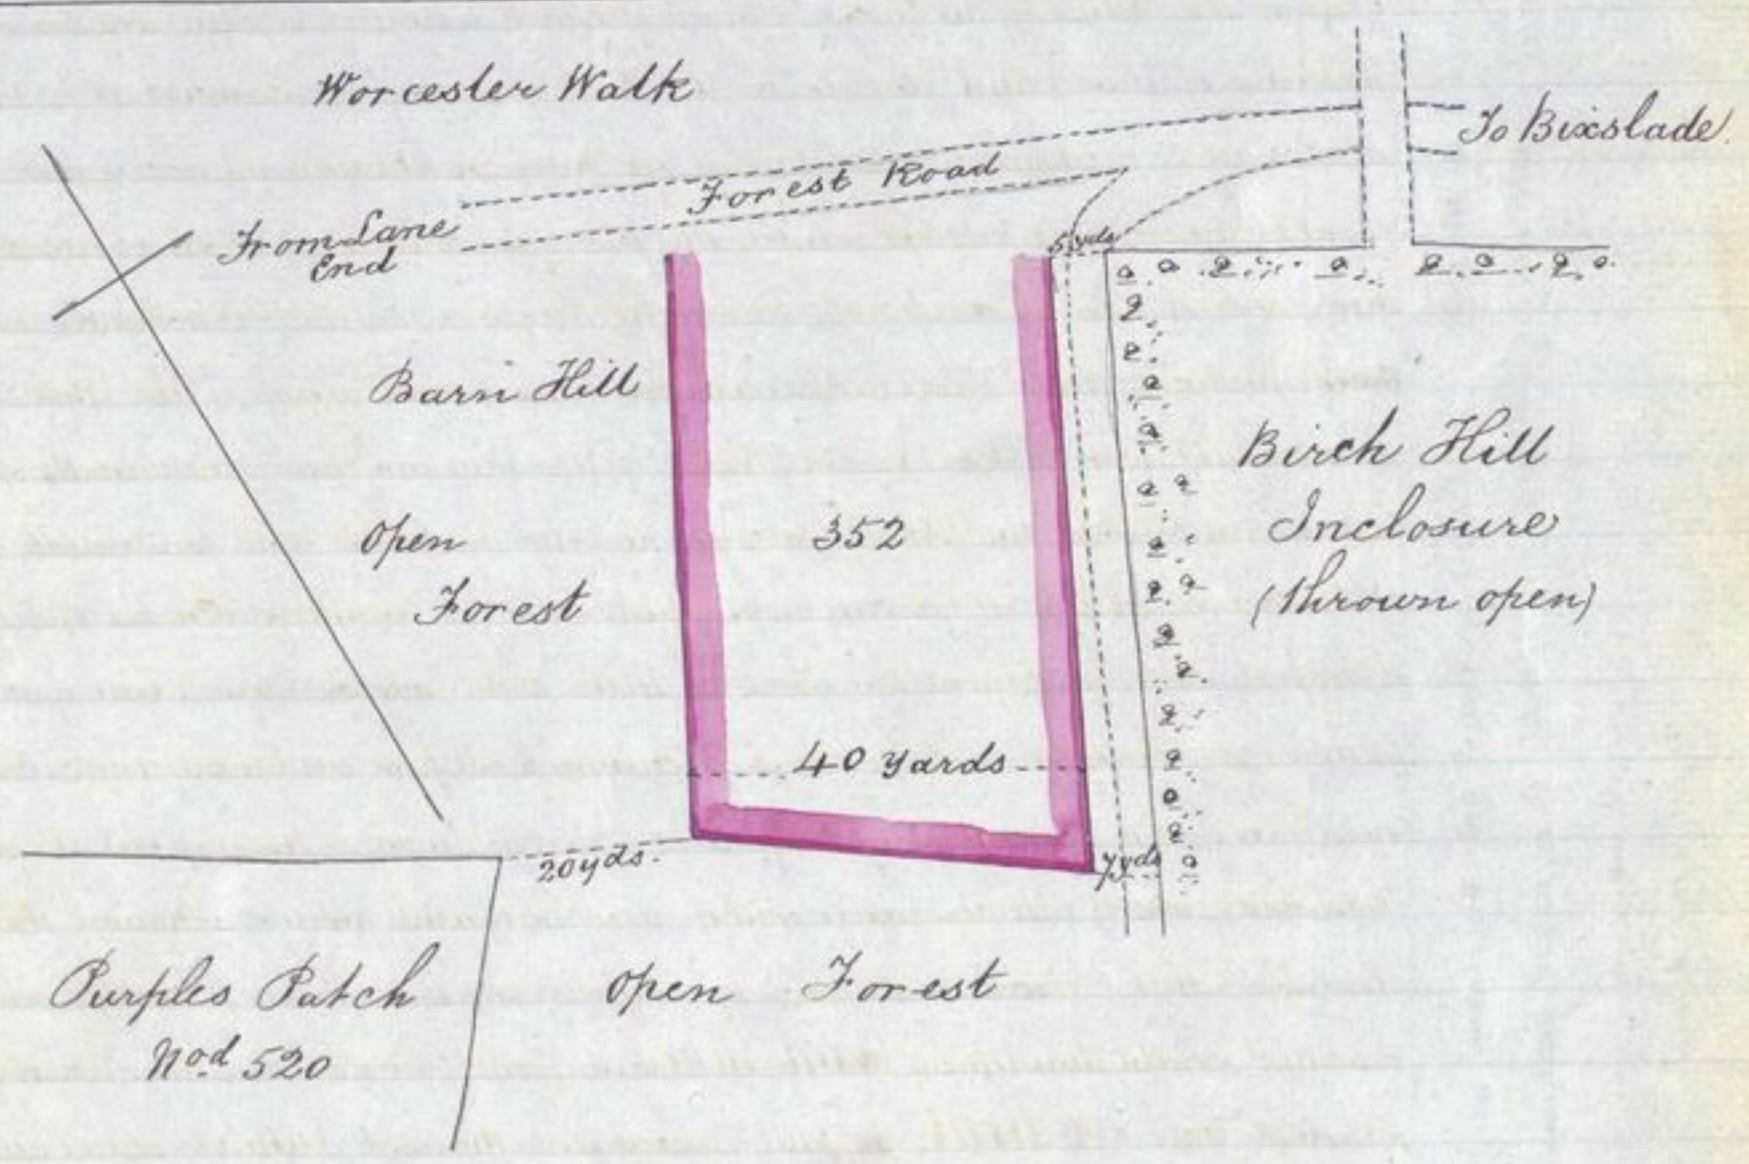 Worcester Walk
To Bixslade.
Forest Road
From Lane
End
5 yds
Barn Hill
Open
Forest
352
Birch Hill
Inclosure
(thrown open)
40 yards
20 yds.
7 yds
Purples Patch
Nod. 520
Open Forest